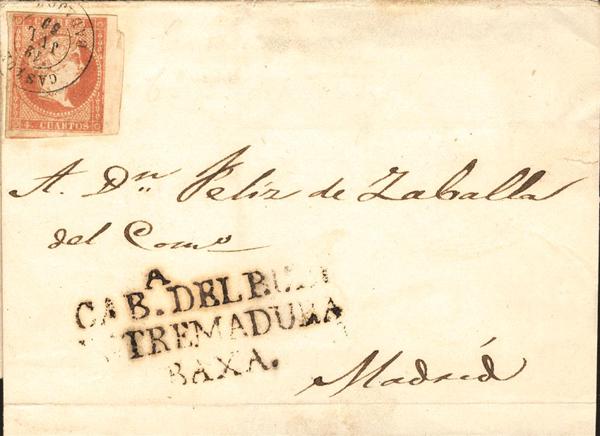 JUL
4. CUARTOS
A. Dn. Feliz de Zaballa
del Como
A
CAB. DEL BUEY
ESTREMADURA
BAXA.
Madrid